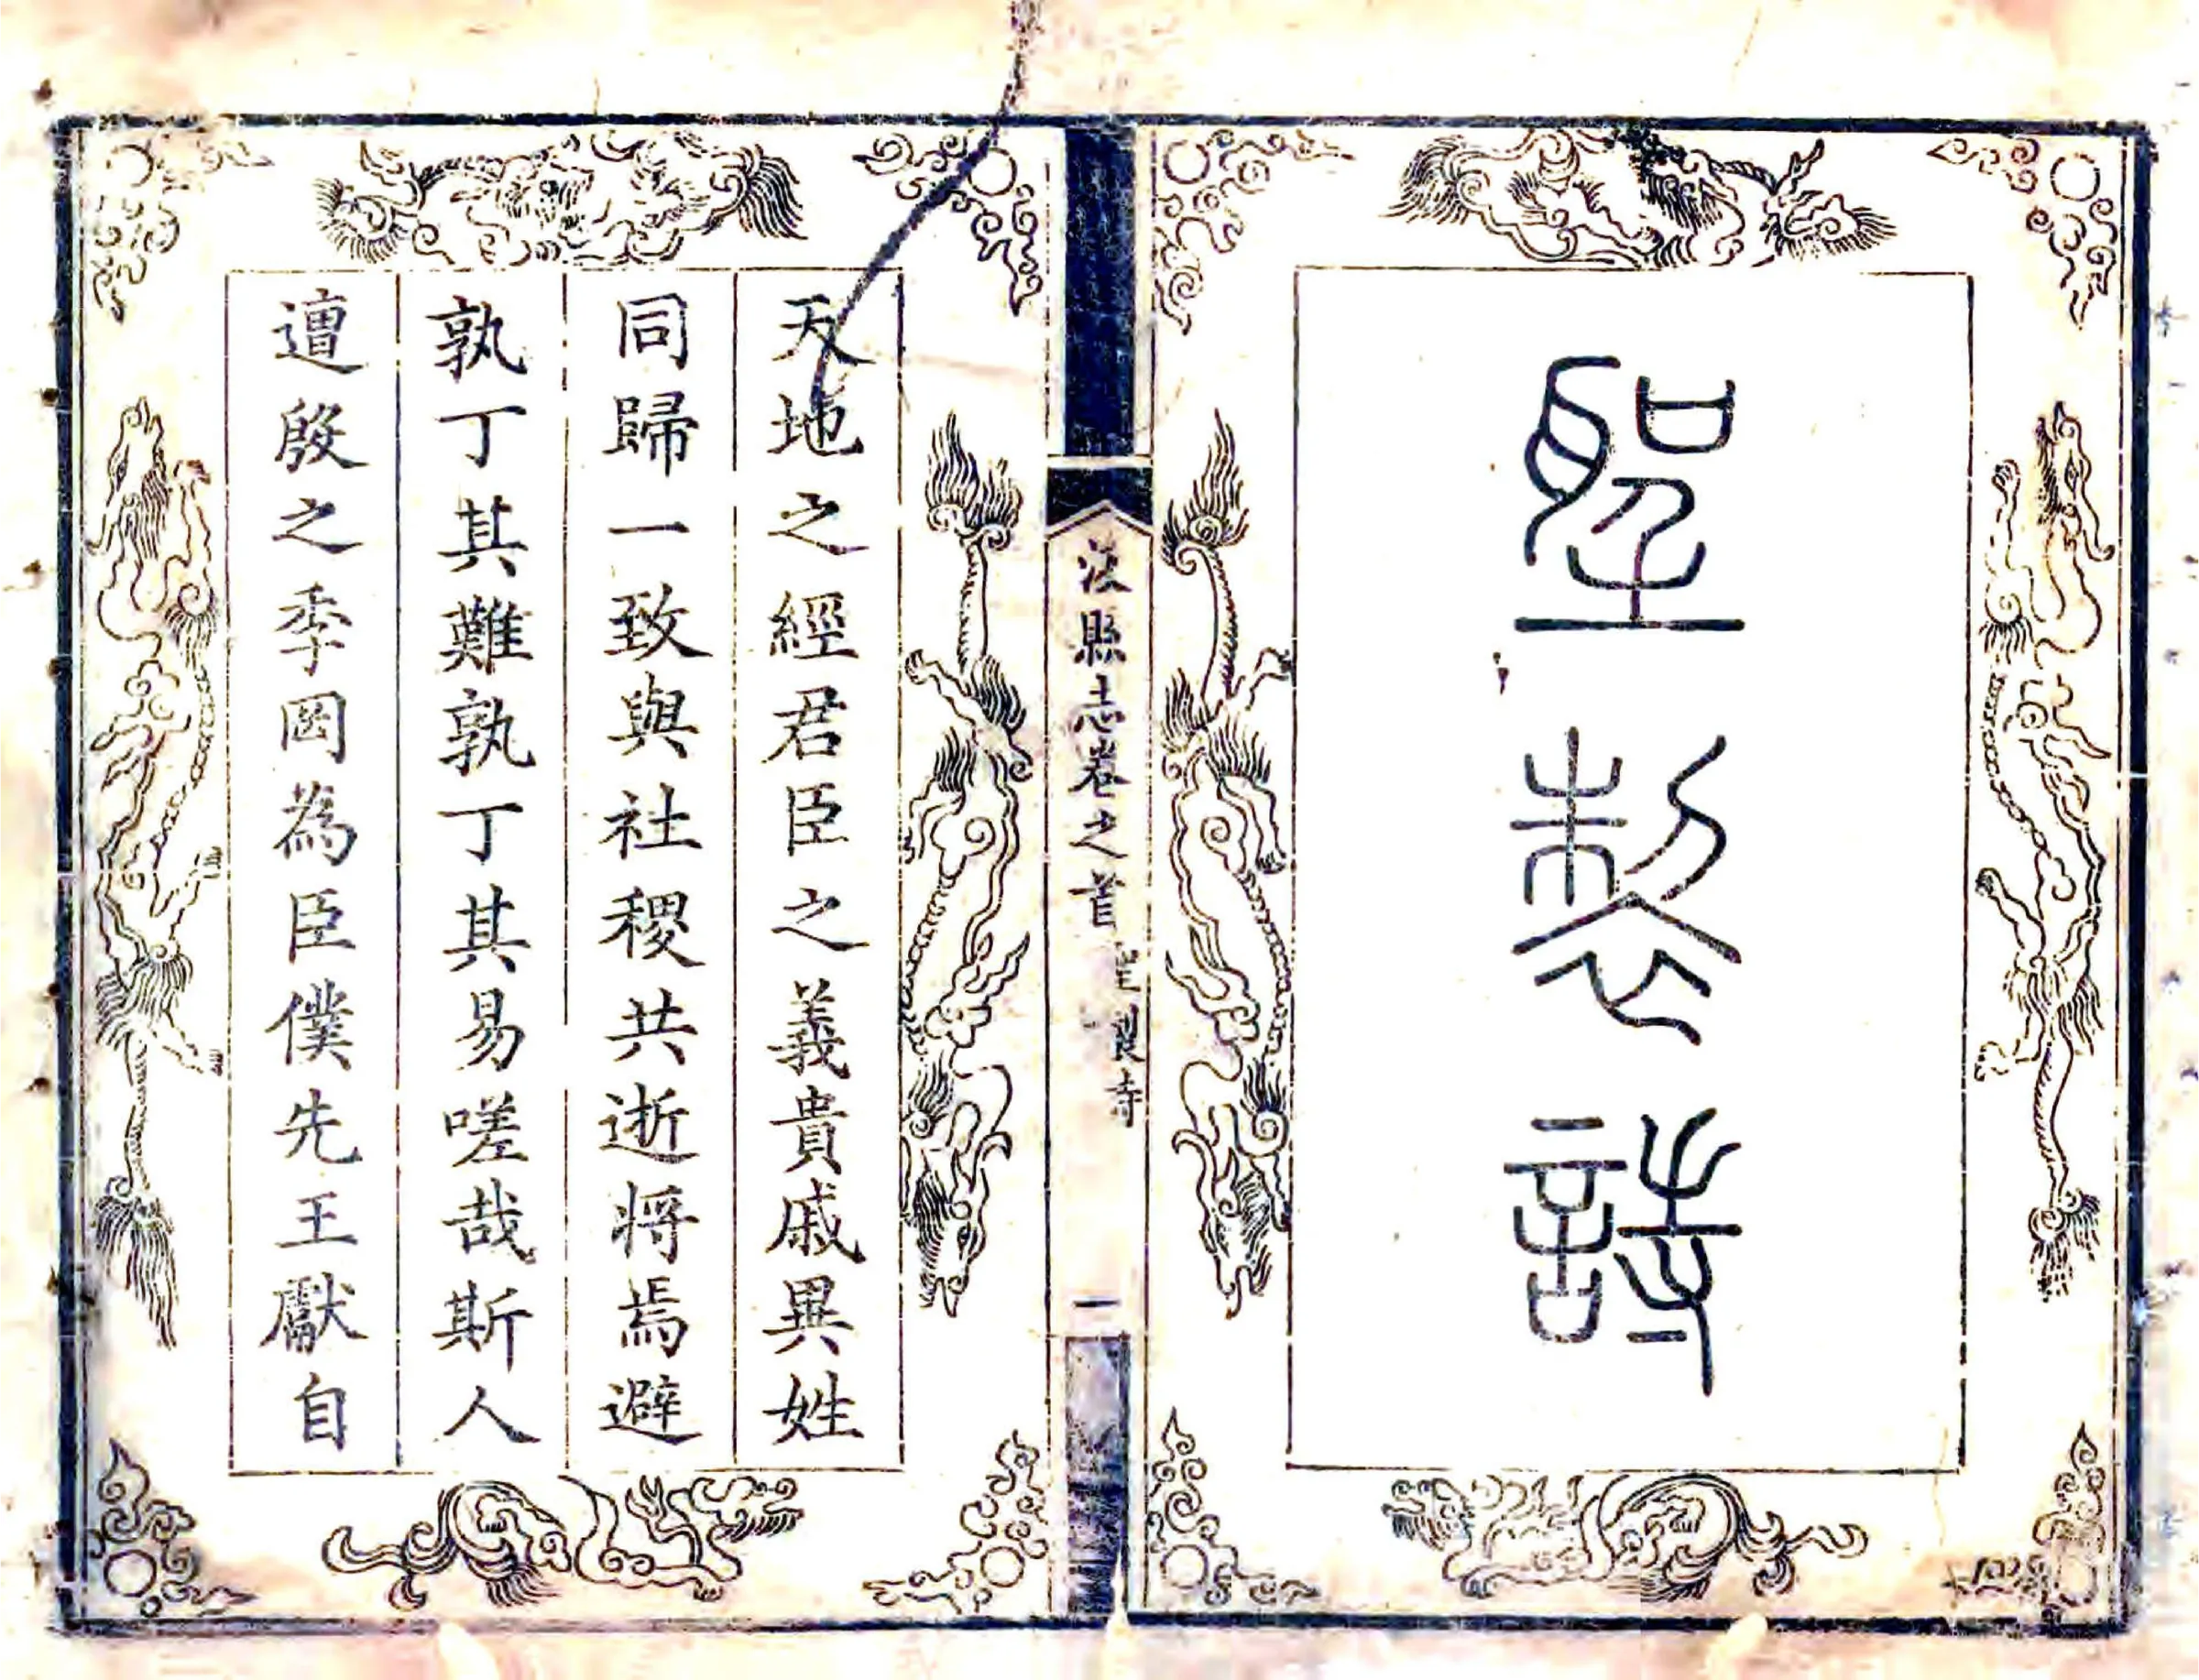 聖製詩
淇縣志卷之首
一
天地之經君臣之義貴戚異姓
同歸一致與社稷共逝將焉避
孰丁其難孰丁其易嗟哉斯人
遭殷之季罔為臣僕先王獻自